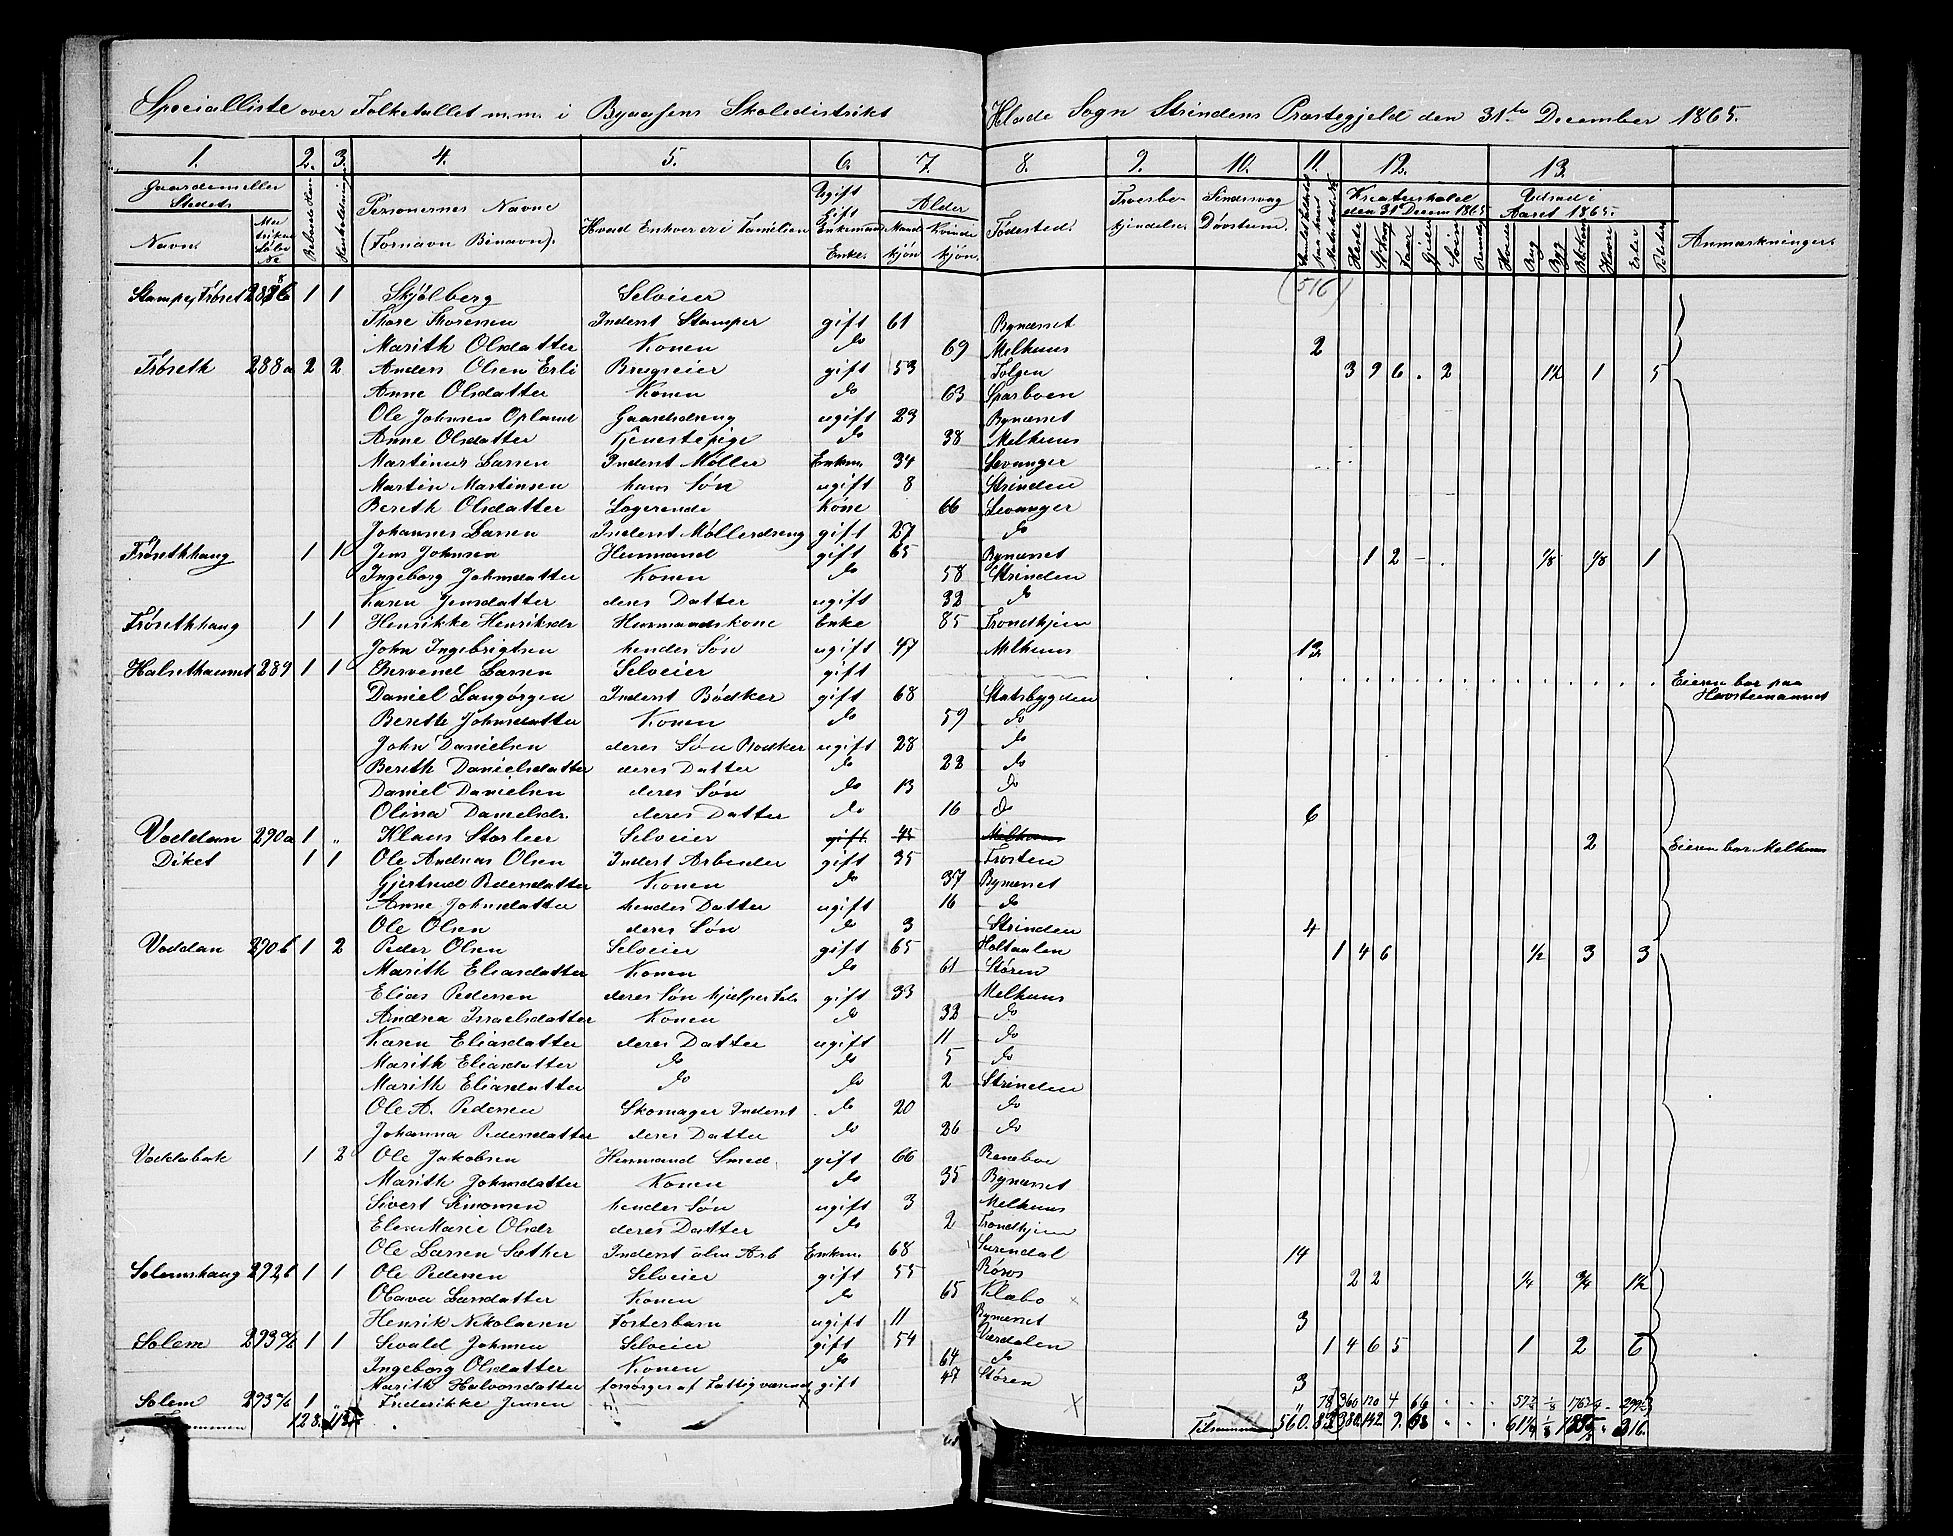 Specialliste over Folketallet m.m. i Byaasens Skoledistrikt Hlade Sogn Strindens Præstegjeld den 31te December 1865.
1. 2. 3. 4. 5. 6. 7. 8. 9. 10. 11. 12. 13.
Gaardens eller Stedets
Navn. Matrikul Løbe No Beboede Huse Huusholdninger Personernes Navne (Fornavn Binavn). Hvad Enhver er i Familien Ugift Gift Enkemand Enke. Alder Mandkjøn Kvindekjøn. Fødested. Troesbekjendelse. Sindssvag Døvstum. Kreaturhold den 31 Decem 1865 Heste Stkqv Faar Gjeder Sviin Rensdyr Udsæd i Aaret 1865. Hvede Rug Byg Blkorn Havre Erter Poteter Anmærkninger.
Stampe, Frøset 288b 1 1 Skjølberg Selveier (516)
Thore Thoresen Inderst Stamper gift 61 Bynæsset
Marith Olsdatter Konen do 69 Melhuus 2
Frøseth 288a 2 2 Anders Olsen Erli Brugseier gift 53 Tolgen 3 9 6 . 2 1½ 1 5
Anne Olsdatter Konen do 63 Sparboen
Ole Johnsen Opland Gaardsdreng ugift 23 Bynæsset
Anne Olsdatter Tjenestepige do 38 Melhuus
Martinus Larsen Inderst Møller Enkm. 34 Levanger
Martin Martinsen hans Søn ugift 8 Strinden
Bereth Olsdatter Logerende Kone 66 Levanger
Johannes Larsen Inderst Møllerdreng gift 27 do
Frøsethhaug 1 1 Jens Johnsen Huusmand gift 65 Bynæsset 1 2 - . ⅛ ⅛ 1
Ingeborg Johnsdatter Konen do 58 Strinden
Karen Jensdatter deres Datter ugift 32 do
Frøsethhaug 1 1 Henrikke Henriksdr Huusmandskone Enke 85 Trondhjem
John Ingebrigtsen hendes Søn ugift 47 Melhuus 13
Halsethaunet 289 1 1 Larsen Selveier gift Eieren bor paa Havsteinaunet
Daniel Langørgen Inderst Bødker gift 68 Statsbygden
Berethe Johnsdatter Konen do 59 do
John Danielsen deres Søn Bødker ugift 28 do
Bereth Danielsdatter deres Datter do 22 do
Daniel Danielsen deres Søn do 13 do
Olina Danielsdr. deres Datter do 16 do 6
Voddan 290a 1 „ Klaus Storleer Selveier gift 45 Melhuus 2 Eieren bor Melhuus
Diket 1 1 Ole Andreas Olsen Inderst Arbeider gift 35 Frosten
Gjertrud Pedersdatter Konen do 37 Bynæsset
Anne Johnsdatter hendes Datter ugift 16 do
Ole Olsen deres Søn do 3 Strinden 4
Voddan 290b 1 2 Peder Olsen Selveier gift 65 Holtaalen 1 4 6 ½ 3 3
Marith Eliasdatter Konen do 61 Støren
Elias Pedersen deres Søn hjelper Fad. gift 33 Melhuus
Andrea Israelsdatter Konen do 32 do
Karen Eliasdatter deres Datter ugift 11 do
Marith Eliasdatter do do 5 do
Marith Eliasdatter do do 2 Strinden
Ole A. Pedersen Skomager Inderst . do 20 do
Johanna Pedersdatter deres Datter do 26 do
Voddabak 1 2 Ole Jakobsen Huusmand Smed. gift 66 Renneboe
Marith Johnsdatter Konen do 35 Bynæsset
Sivert Simonsen hendes Søn ugift 3 Melhuus
Elen Marie Olsdr deres Datter do 2 Trondhjem
Ole Larsen Sæther Inderst alm Arb Enkm. 68 Surendal 14
Solemshaug 292b 1 1 Ole Pedersen Selveier gift 55 Røros 2 2 ¼ ¾ 1½
Olava Larsdatter Konen do 65 Klæbo ×
Henrik Nikolaisen Fosterbarn ugift 11 Bynæsset 3
Solem 293a/b 1 1 Sivald Johnsen Selveier gift 54 Værdalen 1 4 6 5 1 2 6
Ingeborg Olsdatter Konen do 64 do
Marith Halvorsdatter forsørges af Fattigvæsenet gift 47 Støren 3
Solem 293a/b 1 „ Frederikke Jensen × × „ 78 360 120 4 66
128. Tilsammen 560. 83 380. 142 9. 68 61¼ ⅛ 316.